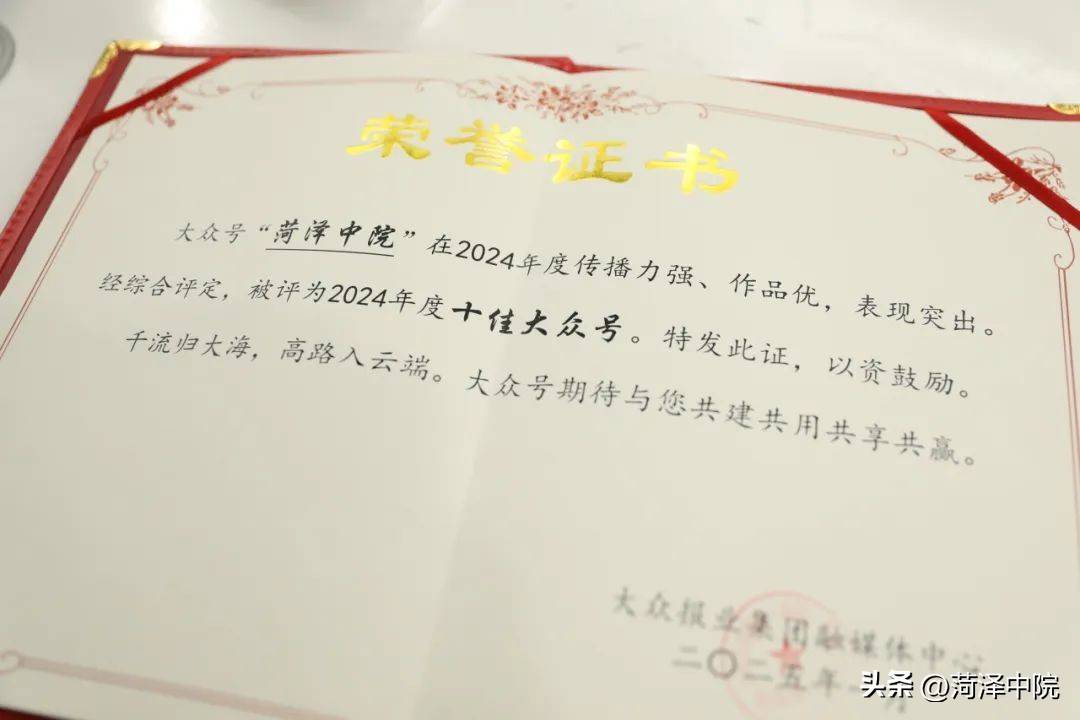 荣誉证书
大众号“菏泽中院”在2024年度传播力强、作品优，表现突出。
经综合评定，被评为2024年度十佳大众号。特发此证，以资鼓励。
千流归大海，高路入云端。大众号期待与您共建共用共享共赢。
大众报业集团融媒体中心
二〇二五年 月
头条 @菏泽中院